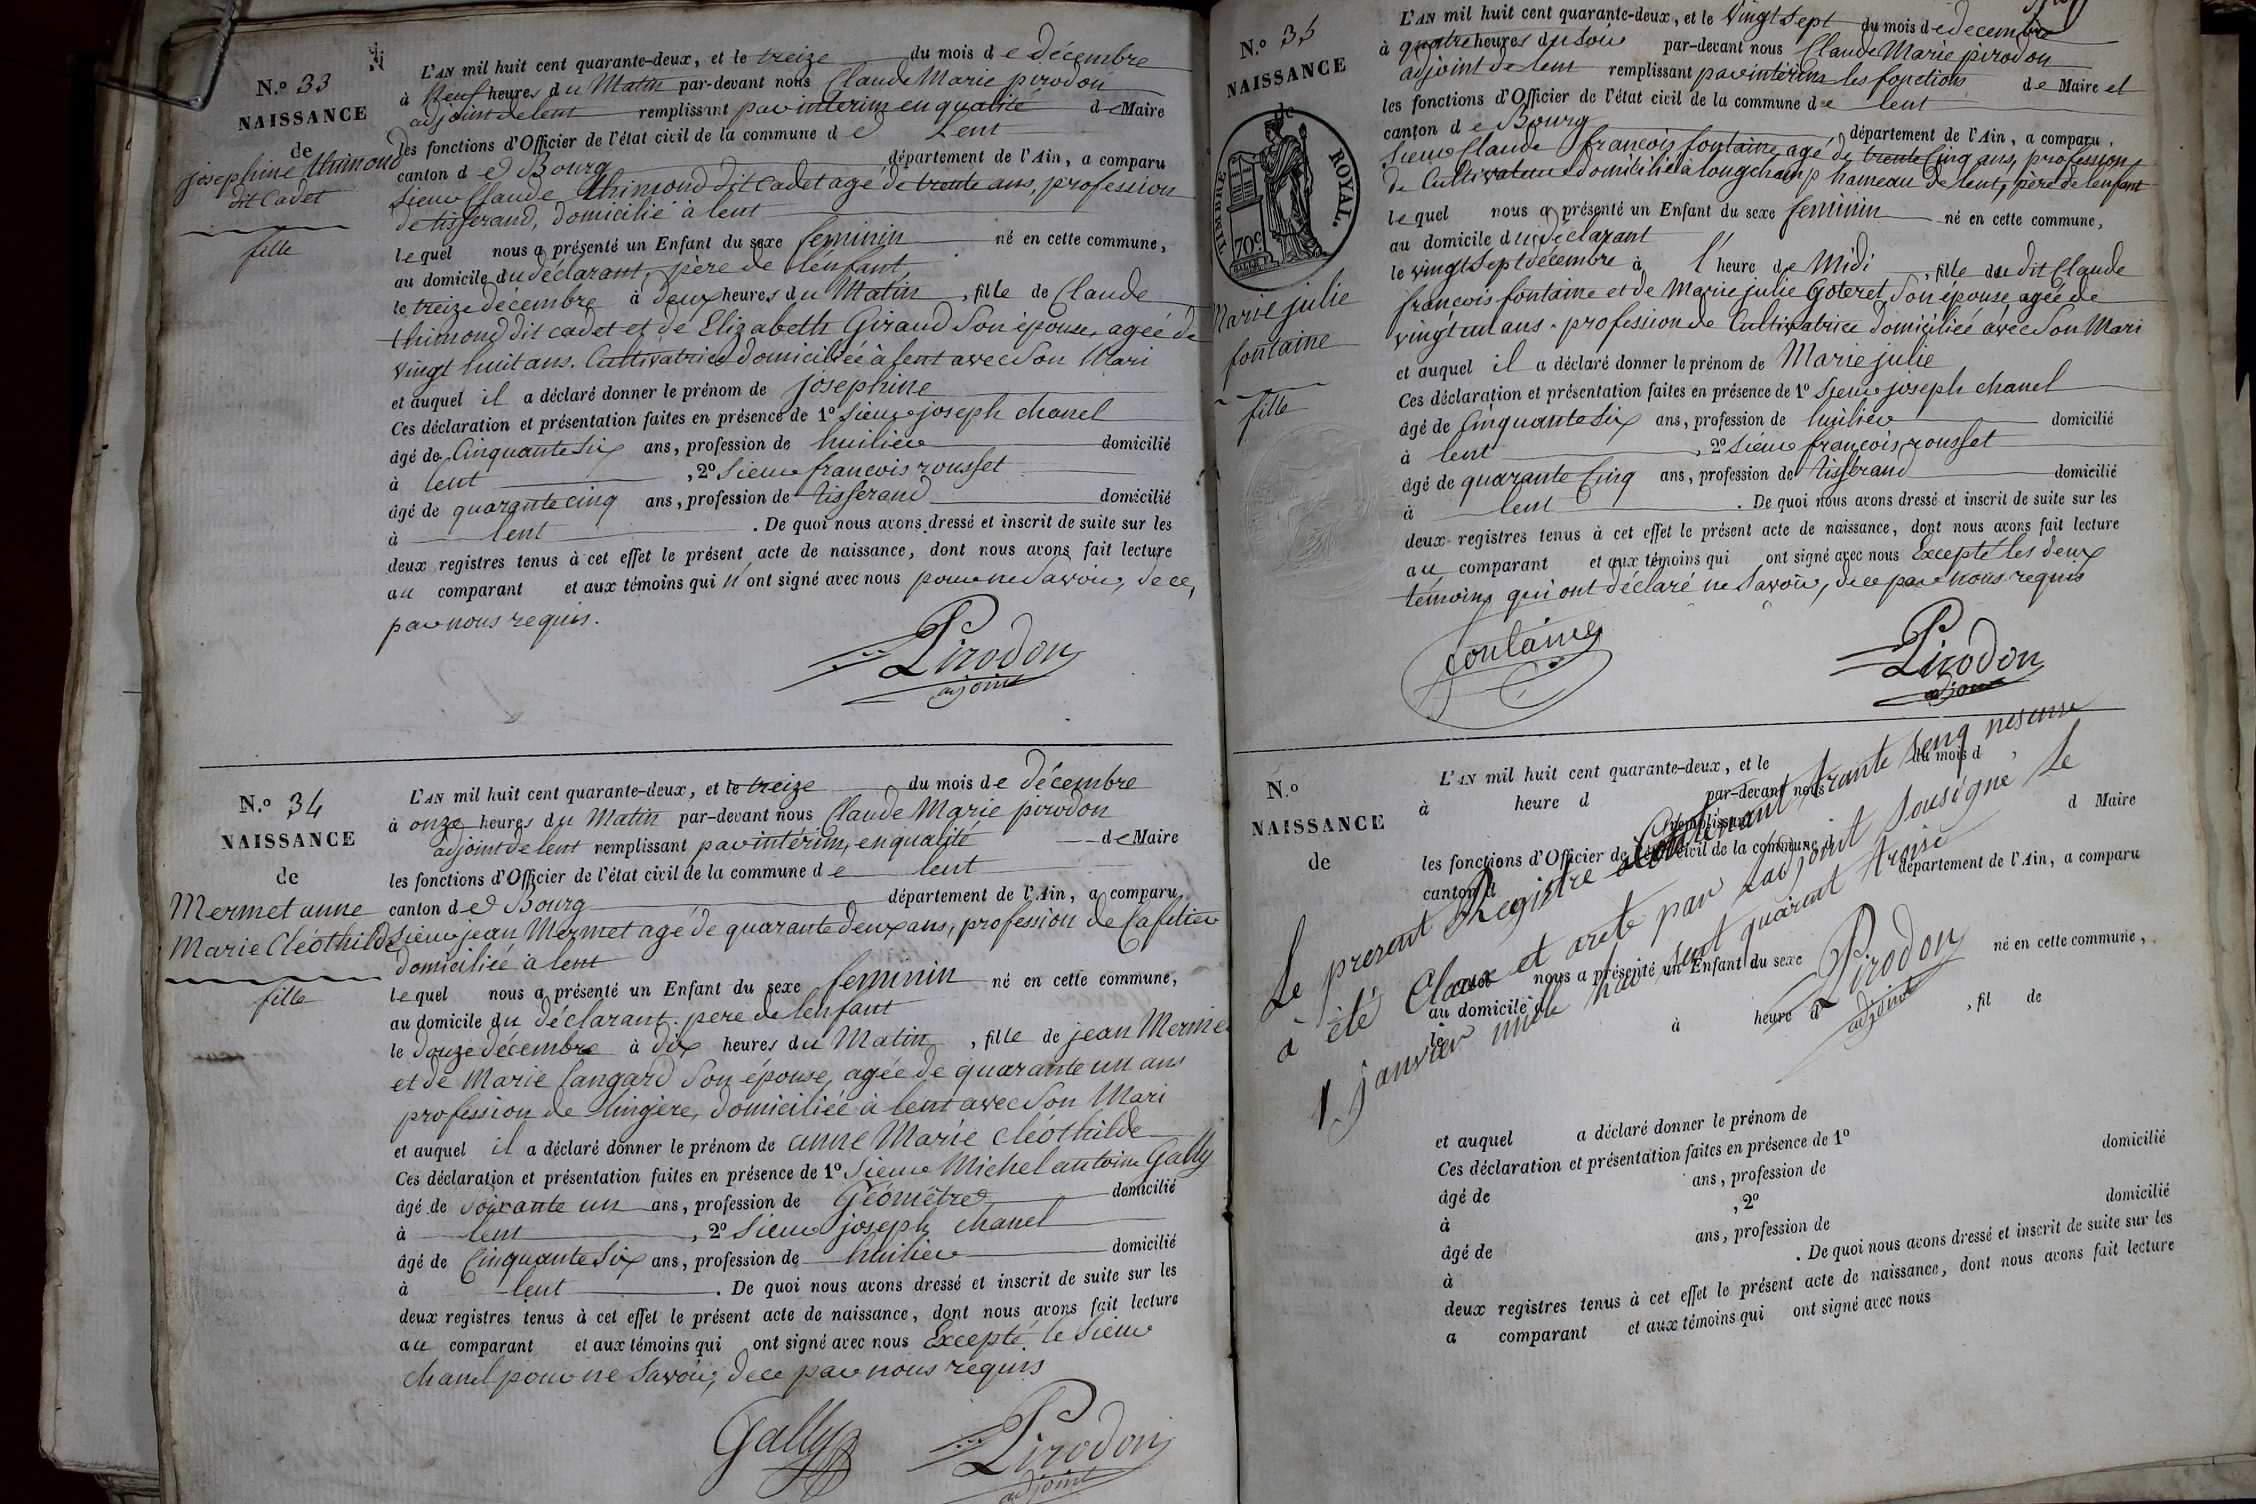 N.º 33
NAISSANCE
de
josephine thimond
dit Cadet
fille
L'AN mil huit cent quarante-deux, et le treize du mois de décembre
à Neuf heures du Matin par-devant nous Claude Marie pirodon
adjoint de lent remplissant par interim en qualité de Maire
les fonctions d'Officier de l'état civil de la commune de Lent
canton de Bourg département de l'Ain, a comparu
Sieur Claude thimond dit Cadet agé de trente ans, profession
de tisserand, domicilié à lent
lequel nous a présenté un Enfant du sexe feminin né en cette commune,
au domicile du déclarant, père de l'enfant,
le treize décembre à deux heures du Matin, fille de Claude
thimond dit cadet et de Elizabeth Giraud son épouse, agée de
vingt huit ans. Cultivatrice domiciliée à lent avec son Mari
et auquel il a déclaré donner le prénom de josephine
Ces déclaration et présentation faites en présence de 1º Sieur joseph chanel
âgé de Cinquante six ans, profession de huilier domicilié
à lent, 2º Sieur francois rousset
âgé de quarante cinq ans, profession de tisserand domicilié
à lent. De quoi nous avons dressé et inscrit de suite sur les
deux registres tenus à cet effet le présent acte de naissance, dont nous avons fait lecture
au comparant et aux témoins qui n'ont signé avec nous pour ne savoir, de ce,
par nous requis.
Pirodon
adjoint
N.º 34
NAISSANCE
de
Mermet anne
Marie Cléothilde
fille
L'AN mil huit cent quarante-deux, et le treize du mois de décembre
à onze heures du Matin par-devant nous Claude Marie pirodon
adjoint de lent remplissant par intérim, en qualité de Maire
les fonctions d'Officier de l'état civil de la commune de lent
canton de Bourg département de l'Ain, a comparu,
Sieur jean Mermet agé de quarante deux ans, profession de Cafetier
domiciliée à lent
lequel nous a présenté un Enfant du sexe feminin né en cette commune,
au domicile du déclarant. pere de lenfant
le douze décembre à dix heures du Matin, fille de jean Mermet
et de Marie Cangard son épouse, agée de quarante un ans
profession de lingère, domiciliée à lent avec son Mari
et auquel il a déclaré donner le prénom de anne Marie cléothilde
Ces déclaration et présentation faites en présence de 1º Sieur Michel antoine Gally
âgé de soixante un ans, profession de Géomêtre domicilié
à lent, 2º Sieur joseph chanel
âgé de Cinquante six ans, profession de huilier domicilié
à lent. De quoi nous avons dressé et inscrit de suite sur les
deux registres tenus à cet effet le présent acte de naissance, dont nous avons fait lecture
au comparant et aux témoins qui ont signé avec nous Excepté le Sieur
chanel pour ne savoir, de ce par nous requis
Gally
Pirodon
adjoint
N.º 35
NAISSANCE
de
TIMBRE ROYAL.
70c
Marie julie
fontaine
fille
L'AN mil huit cent quarante-deux, et le Vingt Sept du mois de decembre
à quatre heures du soir par-devant nous Claude Marie pirodon
adjoint de lent remplissant par intérim les fonctions de Maire et
les fonctions d'Officier de l'état civil de la commune de lent
canton de Bourg département de l'Ain, a comparu,
Sieur Claude francois fontaine agé de trente Cinq ans, profession
de Cultivateur domicilié à longchamp hameau de lent, père de lenfant
lequel nous a présenté un Enfant du sexe feminin né en cette commune,
au domicile du déclarant
le vingt sept décembre à l'heure de Midi, fille du dit Claude
francois fontaine et de Marie julie Goteret son épouse, agée de
vingt un ans. profession de Cultivatrice domiciliée avec son Mari
et auquel il a déclaré donner le prénom de Marie julie
Ces déclaration et présentation faites en présence de 1º Sieur joseph chanel
âgé de Cinquante six ans, profession de huilier domicilié
à lent, 2º Sieur francois rousset
âgé de quarante Cinq ans, profession de tisserand domicilié
à lent. De quoi nous avons dressé et inscrit de suite sur les
deux registres tenus à cet effet le présent acte de naissance, dont nous avons fait lecture
au comparant et aux témoins qui ont signé avec nous Excepté les deux
témoins qui ont déclaré ne savoir, de ce par nous requis
fontaine
Pirodon
adjoint
N.º
NAISSANCE
de
L'AN mil huit cent quarante-deux, et le du mois d
à heure d par-devant nous
remplissant d Maire
les fonctions d'Officier de l'état civil de la commune d
canton d département de l'Ain, a comparu
nous a présenté un Enfant du sexe né en cette commune,
au domicile d
le à heure d, fil de
Le present Registre contenant trante senq nesance
à été Claux et areté par Ladjoint sousigné Le
1 janvier mille huit sent quarant troise
Pirodon
adjoint
et auquel a déclaré donner le prénom de
Ces déclaration et présentation faites en présence de 1º
âgé de ans, profession de domicilié
à, 2º
âgé de ans, profession de domicilié
à. De quoi nous avons dressé et inscrit de suite sur les
deux registres tenus à cet effet le présent acte de naissance, dont nous avons fait lecture
a comparant et aux témoins qui ont signé avec nous